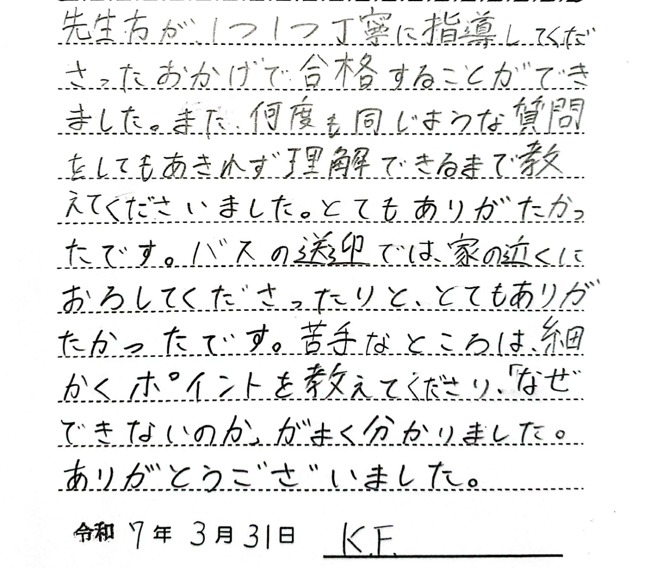 先生方が、1つ1つ丁寧に指導してくだ
さったおかげで合格することができ
ました。また、何度も同じような質問
をしてもあきれず理解できるまで教
えてくださいました。とてもありがたかっ
たです。バスの送迎では、家の近くに
おろしてくださったりと、とてもありが
たかったです。苦手なところは、細
かくポイントを教えてくださり、「なぜ
できないのか」がまく分かりました。
ありがとうございました。
令和 7年 3月 31日 K.F.